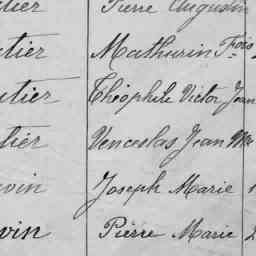 tier Pierre Augustin
utier Mathurin Frois
utier Théophile Victor Jean
utier Venceslas Jean Mie
uvin Joseph Marie
uvin Pierre Marie 2